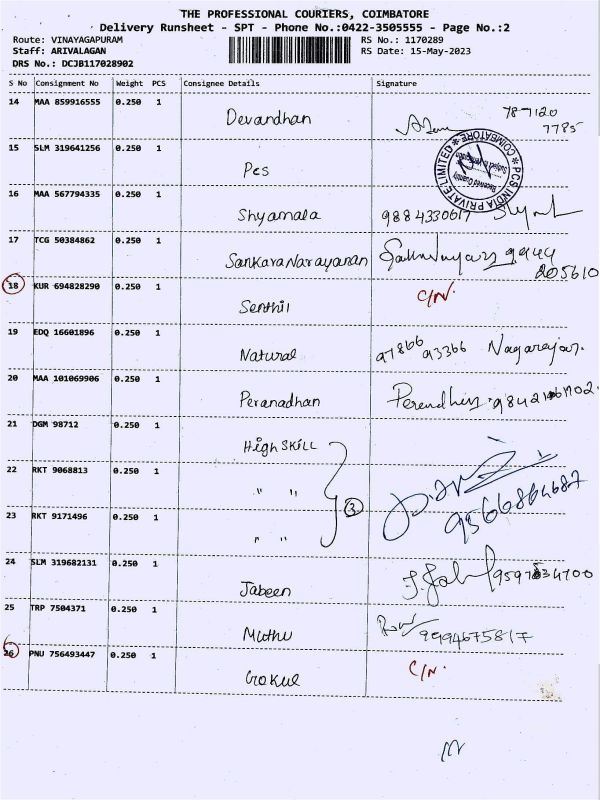 THE PROFESSIONAL COURIERS, COIMBATORE
Delivery Runsheet - SPT - Phone No.:0422-3505555 - Page No.:2
Route: VINAYAGAPURAM RS No.: 1170289
Staff: ARIVALAGAN RS Date: 15-May-2023
DRS No.: DCJB117028902
S No Consignment No Weight PCS Consignee Details Signature
14 MAA 859916555 0.250 1 Devandhan 787120
7785
15 SLM 319641256 0.250 1 Pcs
PCS INDIA PRIVATE LIMITED ★ COIMBATORE ★
Received Quantity
Subject to Verification
16 MAA 567794335 0.250 1 Shyamala 9884330617
17 TCG 50384862 0.250 1 Sankara Narayanan 9944
205610
18 KUR 694828290 0.250 1 Senthil C/N.
19 EDQ 16601896 0.250 1 Natural 97866 93366 Nagarajan.
20 MAA 101069906 0.250 1 Peranadhan
21 DGM 98712 0.250 1 High SKILL
22 RKT 9068813 0.250 1 " "
23 RKT 9171496 0.250 1 " "
3
24 SLM 319682131 0.250 1 Jabeen
25 TRP 7504371 0.250 1 Muthu 9994675817
26 PNU 756493447 0.250 1 Gokul C/N.